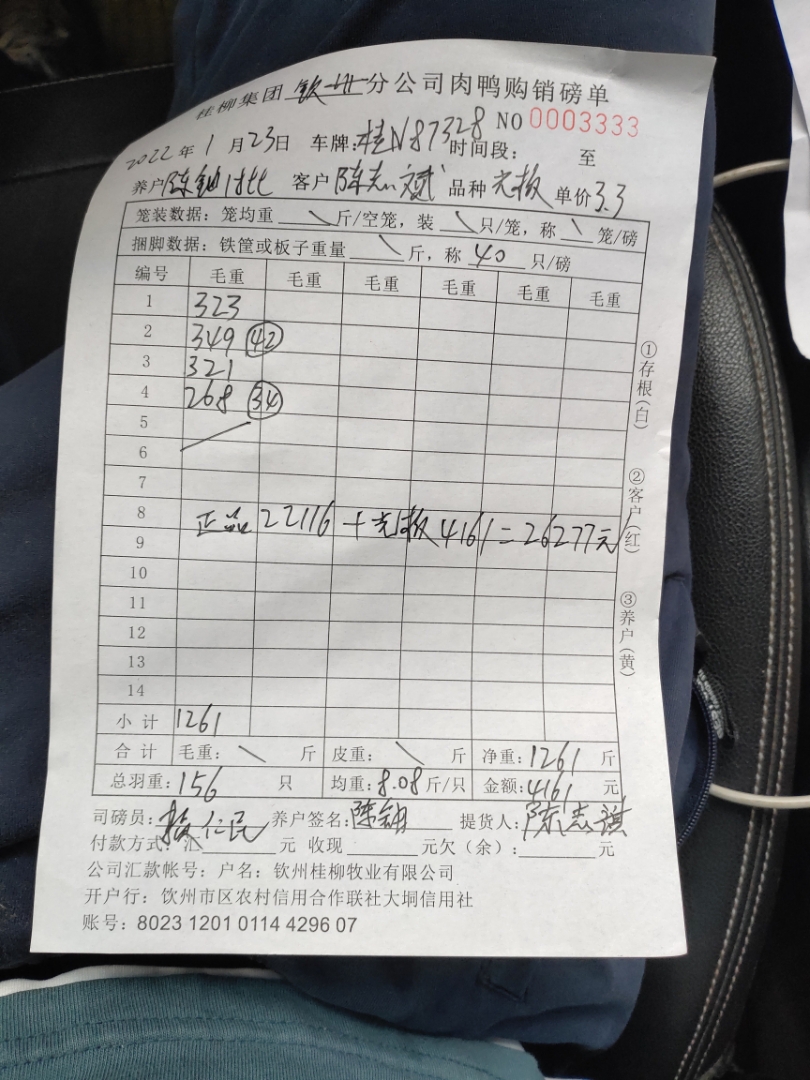 桂柳集团 钦州 分公司肉鸭购销磅单
NO 0003333
2022 年 1 月 23 日 车牌:桂N87328 时间段: 至
养户 陈 客户 陈志 品种 光板 单价 3.3
笼装数据:笼均重 \ 斤/空笼,装 \ 只/笼,称 \ 笼/磅
捆脚数据:铁筐或板子重量 \ 斤,称 40 只/磅
编号 毛重 毛重 毛重 毛重 毛重 毛重
1 323
2 349 42
3 321
4 268 34
5
6
7
8 正品22116+光板4161=26277元
9
10
11
12
13
14
小计 1261
合计 毛重: \ 斤 皮重: \ 斤 净重:1261 斤
总羽重:156 只 均重:8.08 斤/只 金额:4161 元
司磅员: 仁民 养户签名:陈 提货人:陈志
付款方式:汇 元 收现 元欠(余): 元
公司汇款帐号:户名:钦州桂柳牧业有限公司
开户行:钦州市区农村信用合作联社大垌信用社
账号:8023 1201 0114 4296 07
①存根(白)
②客户(红)
③养户(黄)